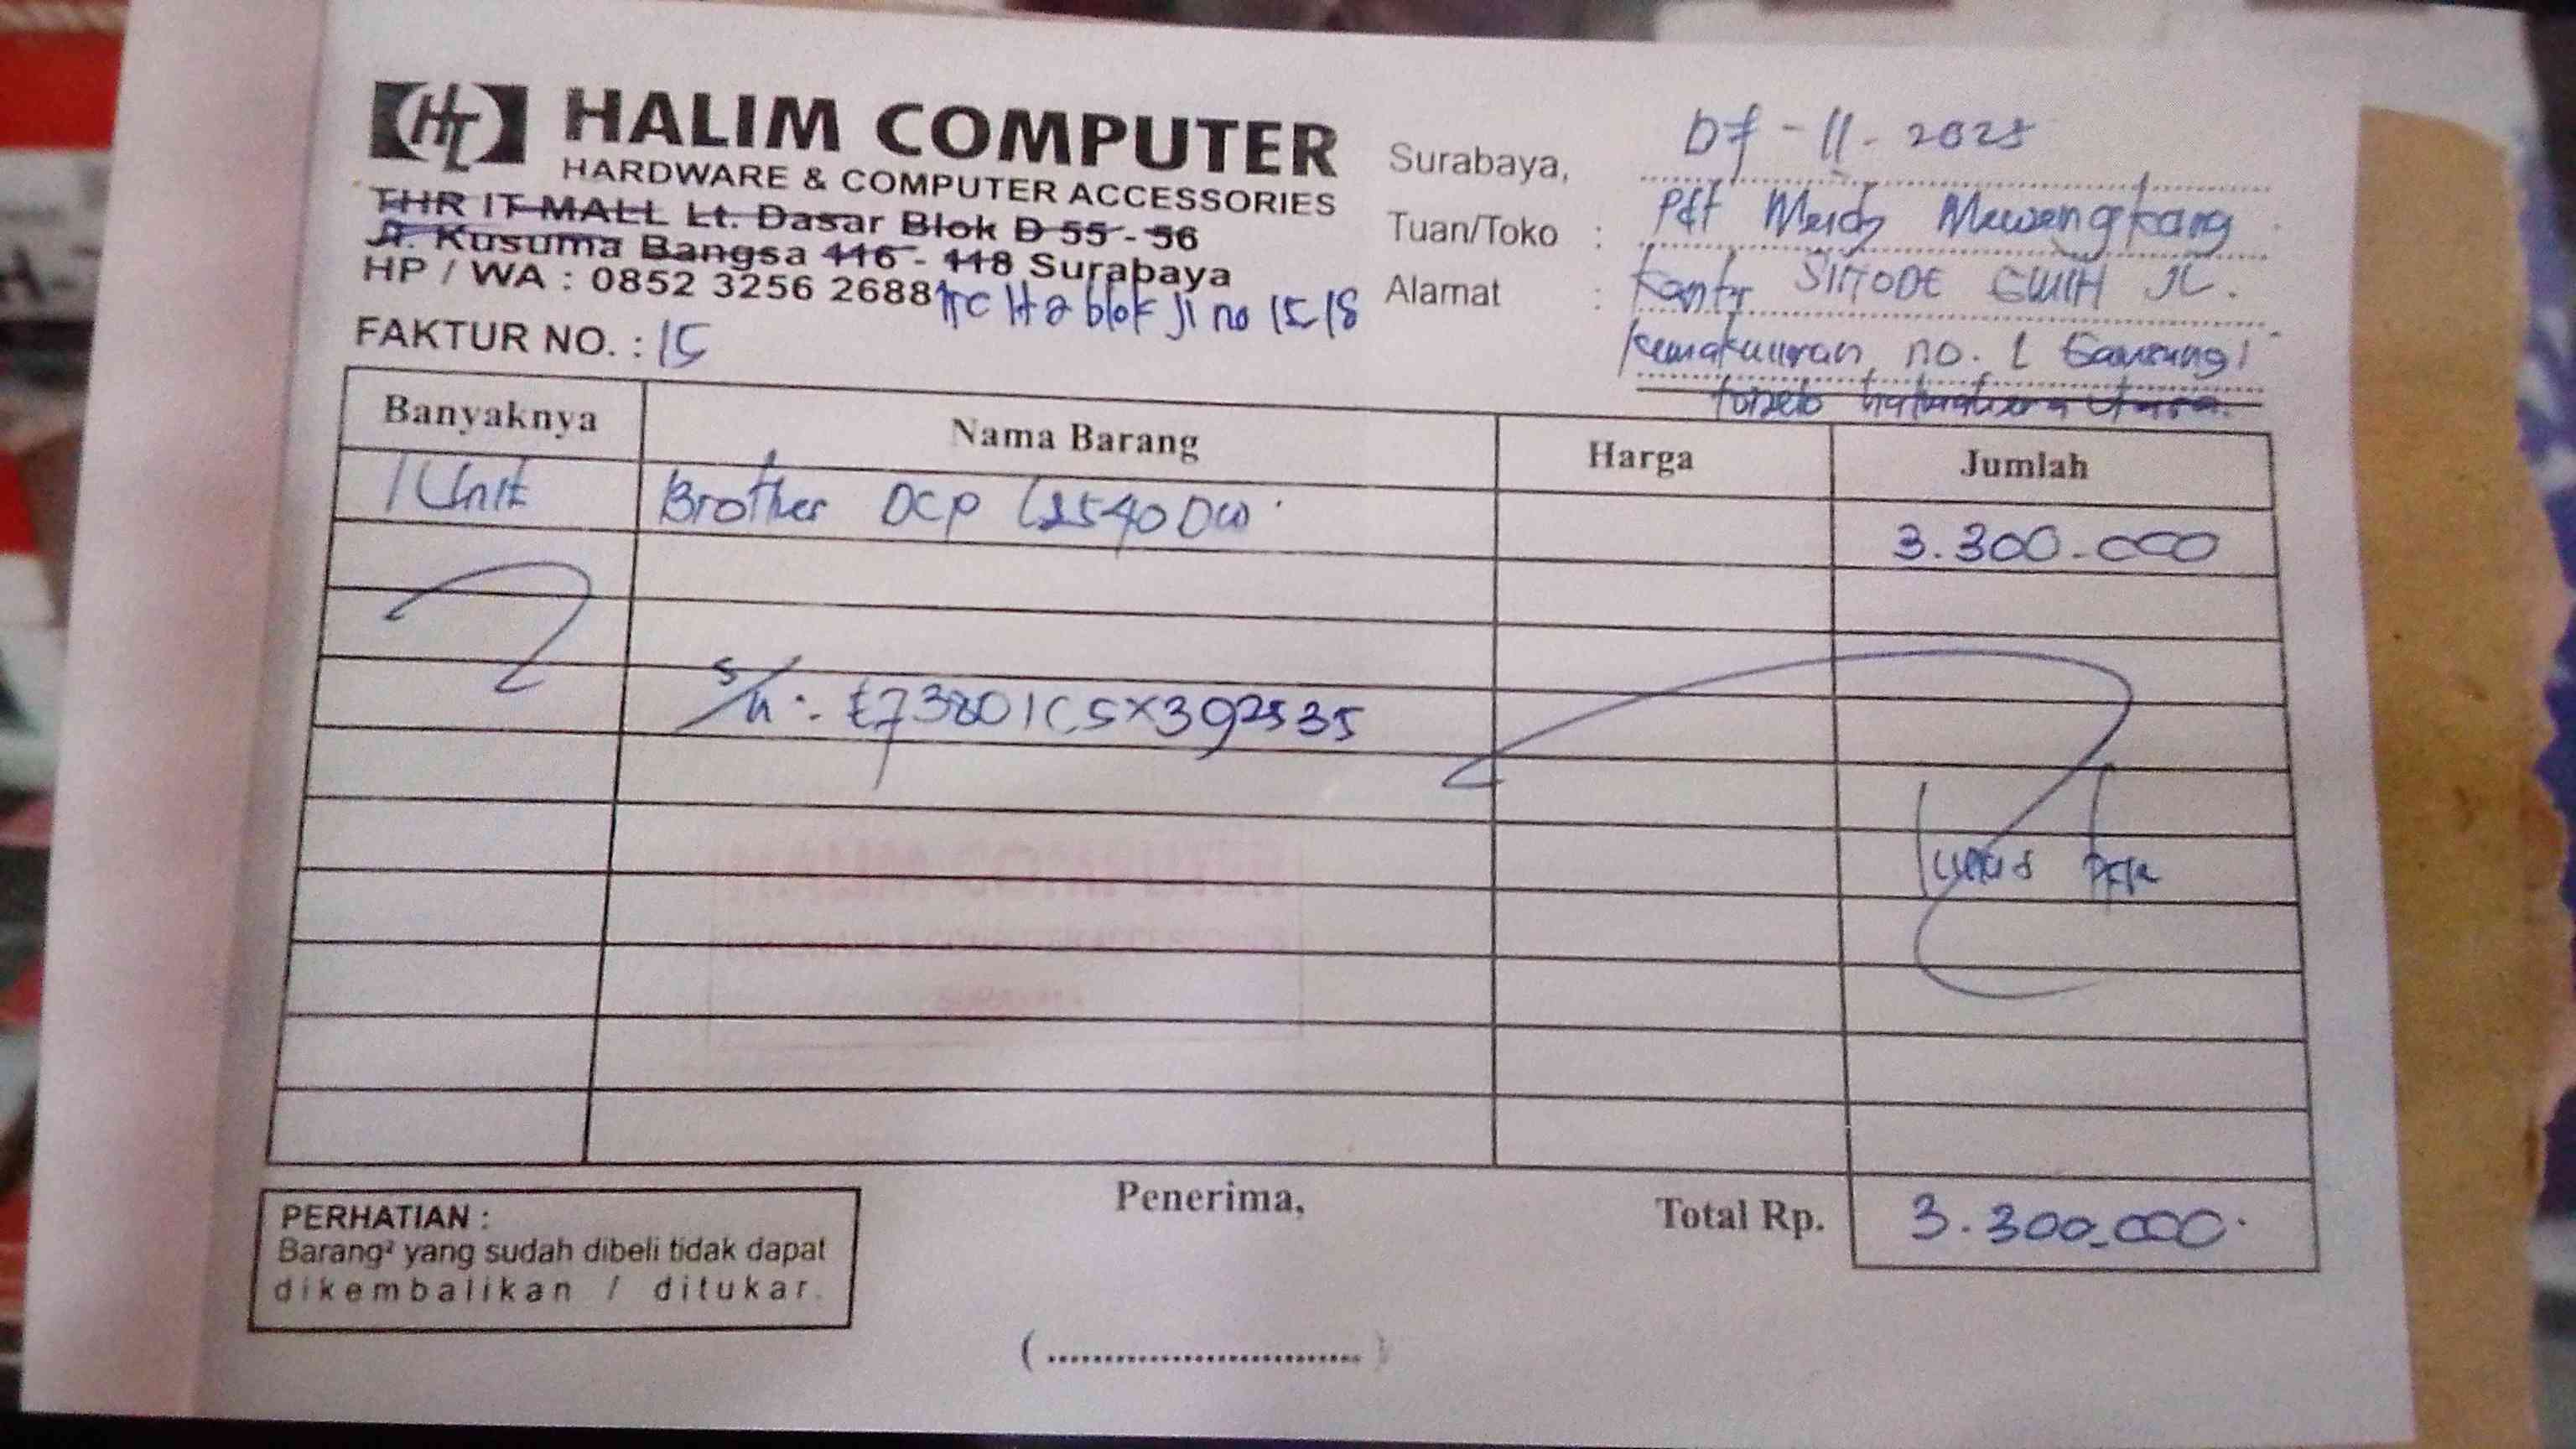 HL HALIM COMPUTER
HARDWARE & COMPUTER ACCESSORIES
THR IT MALL Lt. Dasar Blok D 55 - 56
Jl. Kusuma Bangsa 116 - 118 Surabaya
HP / WA : 0852 3256 2688
ITC Lt 2 blok J1 no 15 18
FAKTUR NO. : 15
Surabaya, 07 - 11 - 2025
Tuan/Toko : Pdt Meidy Mewengkang
Alamat : Kantor SINODE GMIH JL.
Kemakmuran no. 1 Gamsungi
tobelo halmahera Utara.
Banyaknya Nama Barang Harga Jumlah
1 Unit Brother DCP L2540DW 3.300.000
S/N : E73801C5X392535
Lunas
PERHATIAN :
Barang² yang sudah dibeli tidak dapat
dikembalikan / ditukar.
Penerima,
Total Rp. 3.300.000
(..............................)